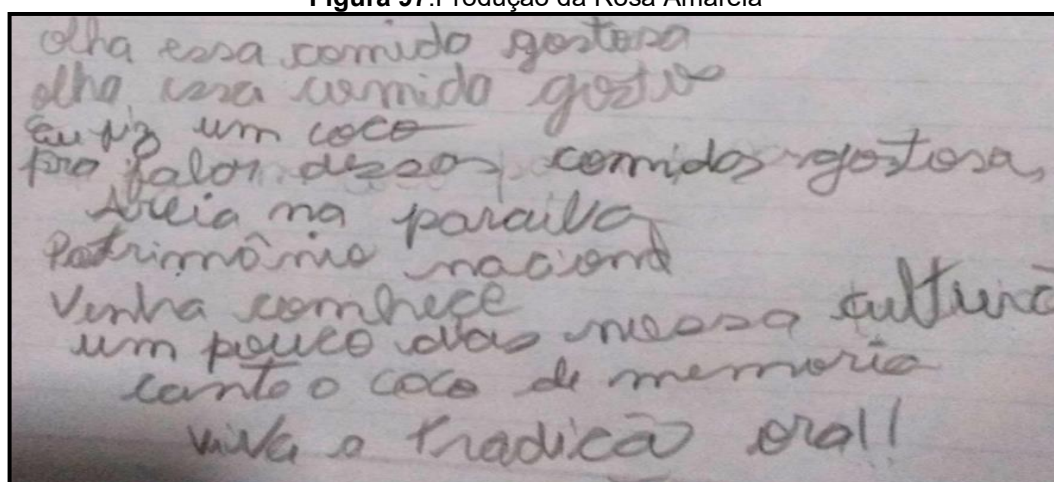 Figura 37:Produção da Rosa Amarela
olha essa comida gostosa
olha, essa comida gosto
Eu fiz um coco
pra falar dessas comidas gostosa,
Areia na paraiba
Patrimônio nacional
Venha conhece
um pouco das nossa cultura
canto o coco de memoria
viva a tradicão oral!!